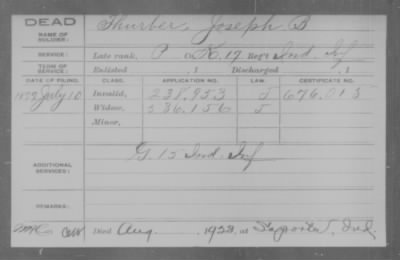 DEAD
NAME OF SOLDIER: Thurber, Joseph B
SERVICE: Late rank, P Co. K, 17 Reg't Ind. Inf
TERM OF SERVICE: Enlisted , 1 Discharged , 1
DATE OF FILING. CLASS. APPLICATION NO. LAW. CERTIFICATE NO.
July 10 Invalid, 238.953 J 676.013
Widow, 536.156 J
Minor,
ADDITIONAL SERVICES: G. 15 Ind. Inf
REMARKS:
Died Aug. , 1922, at Laporte, Ind.